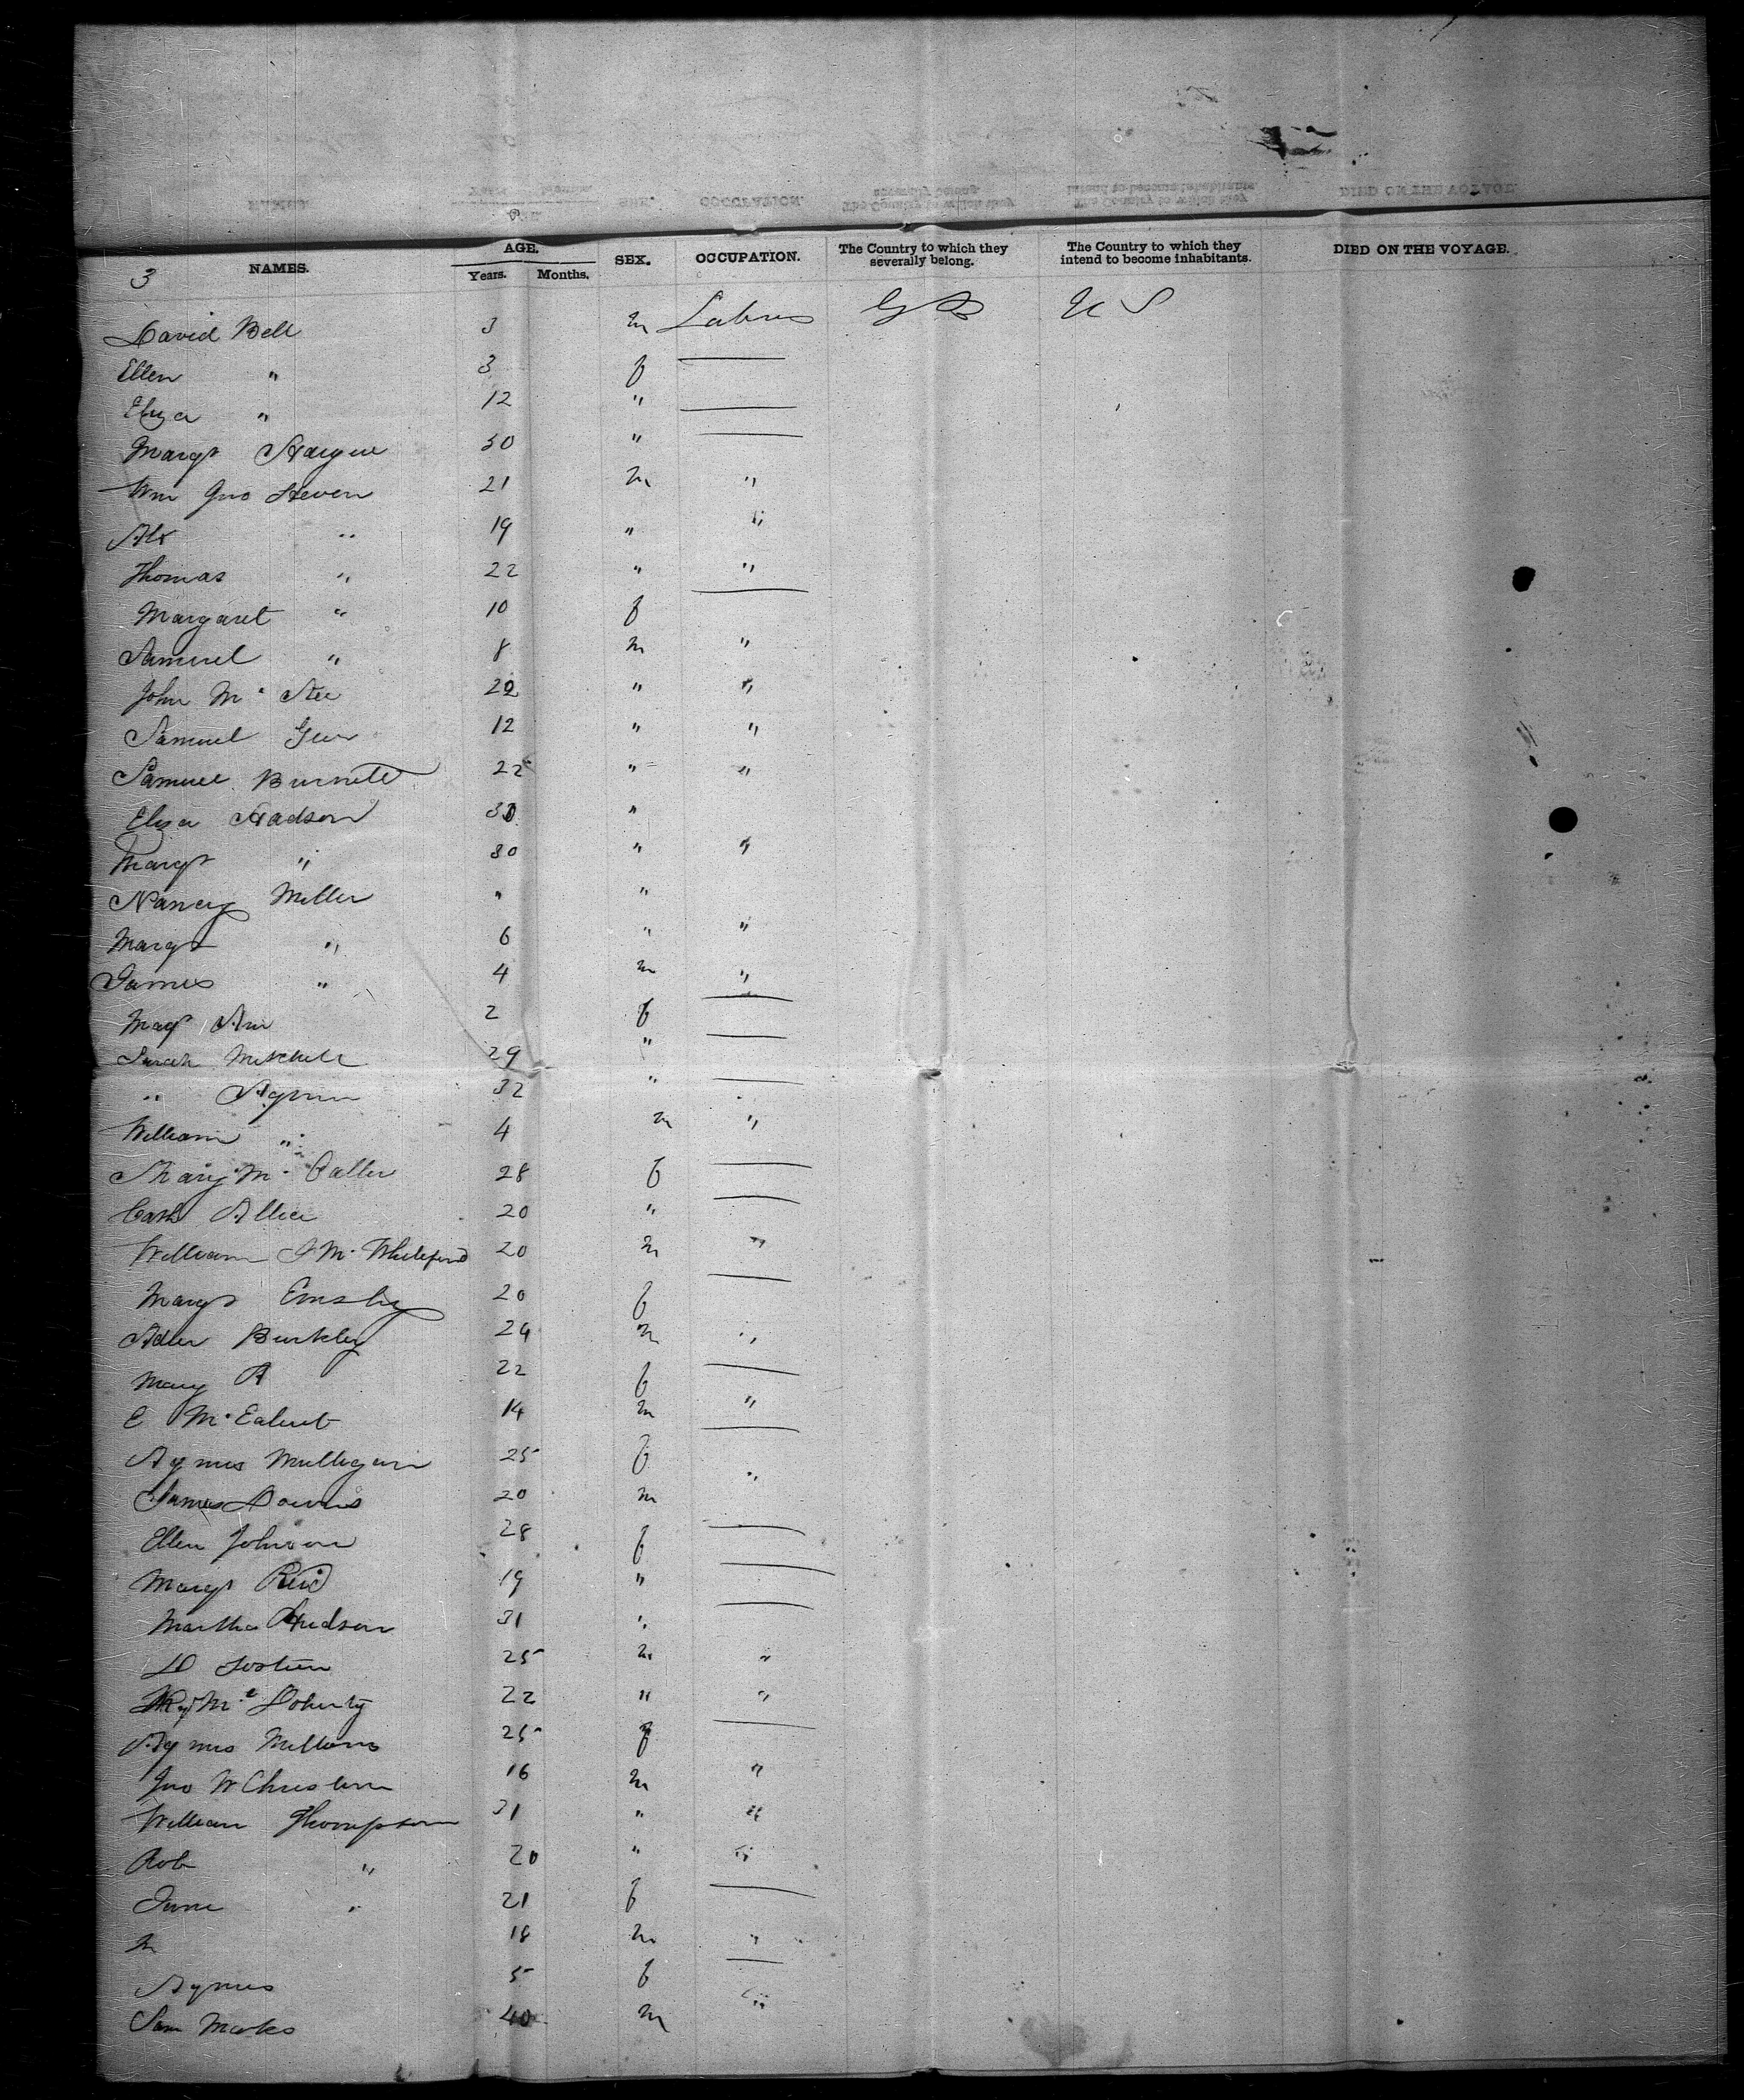 AGE.
3 NAMES. Years. Months. SEX. OCCUPATION. The Country to which they severally belong. The Country to which they intend to become inhabitants. DIED ON THE VOYAGE.
David Bell 3 m G B U S
Ellen " 3 f —
Eliza " 12 " —
Margt 30 " —
Wm Jno Steven 21 m "
Alx " 19 " "
Thomas " 22 " "
Margaret " 10 f —
Samuel " 8 m "
John Mc 22 " "
Samuel 12 " "
Samuel Burnett 22 " "
Eliza Hadson 30 "
Margt " 30 " "
Nancy Miller " "
Margt " 6 " "
James " 4 m "
Magt Ann 2 f —
Sarah Mitchell 29 " —
" 32 " —
William " 4 m "
Mary Mc 28 f —
Cath 20 " —
William 20 m "
Margt Emsley 20 f —
Burkley 24 m "
Mary A 22 f —
E Mc 14 m "
Agnes Mulligan 25 f —
James Downs 20 m "
Ellen Johnson 28 f —
Margt Reid 19 " —
Martha Hudson 31 " —
25 m "
Mc Doherty 22 " "
Agnes 25 f —
Jno W 16 m "
William Thompson 31 " "
Rob " 20 " "
Jane " 21 f —
M 18 m "
Agnes 5 f —
Sam Marks 40 m "